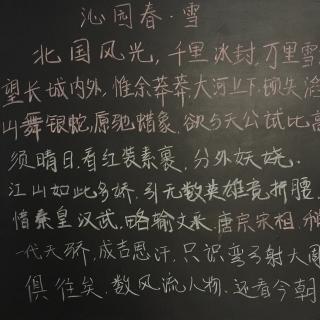 沁园春·雪
北国风光,千里冰封,万里雪
望长城内外,惟余莽莽,大河上下,顿失滔
山舞银蛇,原驰蜡象,欲与天公试比高
须晴日,看红装素裹,分外妖娆.
江山如此多娇,引无数英雄竞折腰
惜秦皇汉武,略输文采,唐宗宋祖,稍
一代天骄,成吉思汗,只识弯弓射大雕
俱往矣,数风流人物,还看今朝